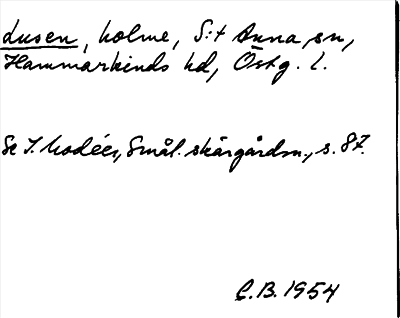 Lusen, holme, S:t Anna sn,
Hammarkinds hd, Östg. l.
Se I. Modéer, Smål. skärgårdsn., s. 87.
C.B. 1954